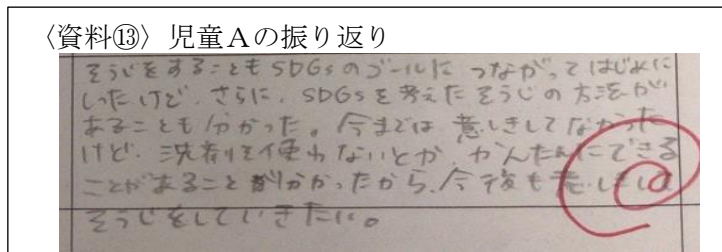 〈資料⑬〉児童Aの振り返り
そうじをすることもSDGsのゴールに つながってはじめに
しったけど、さらに、SDGsを考えたそうじの方法が
あることも分かった。今までは 意しきしてなかった
けど、洗剤を使わないとか、かんたんにできる
ことがあること が分かったから、今後も意しきして
そうじをしていきたい。